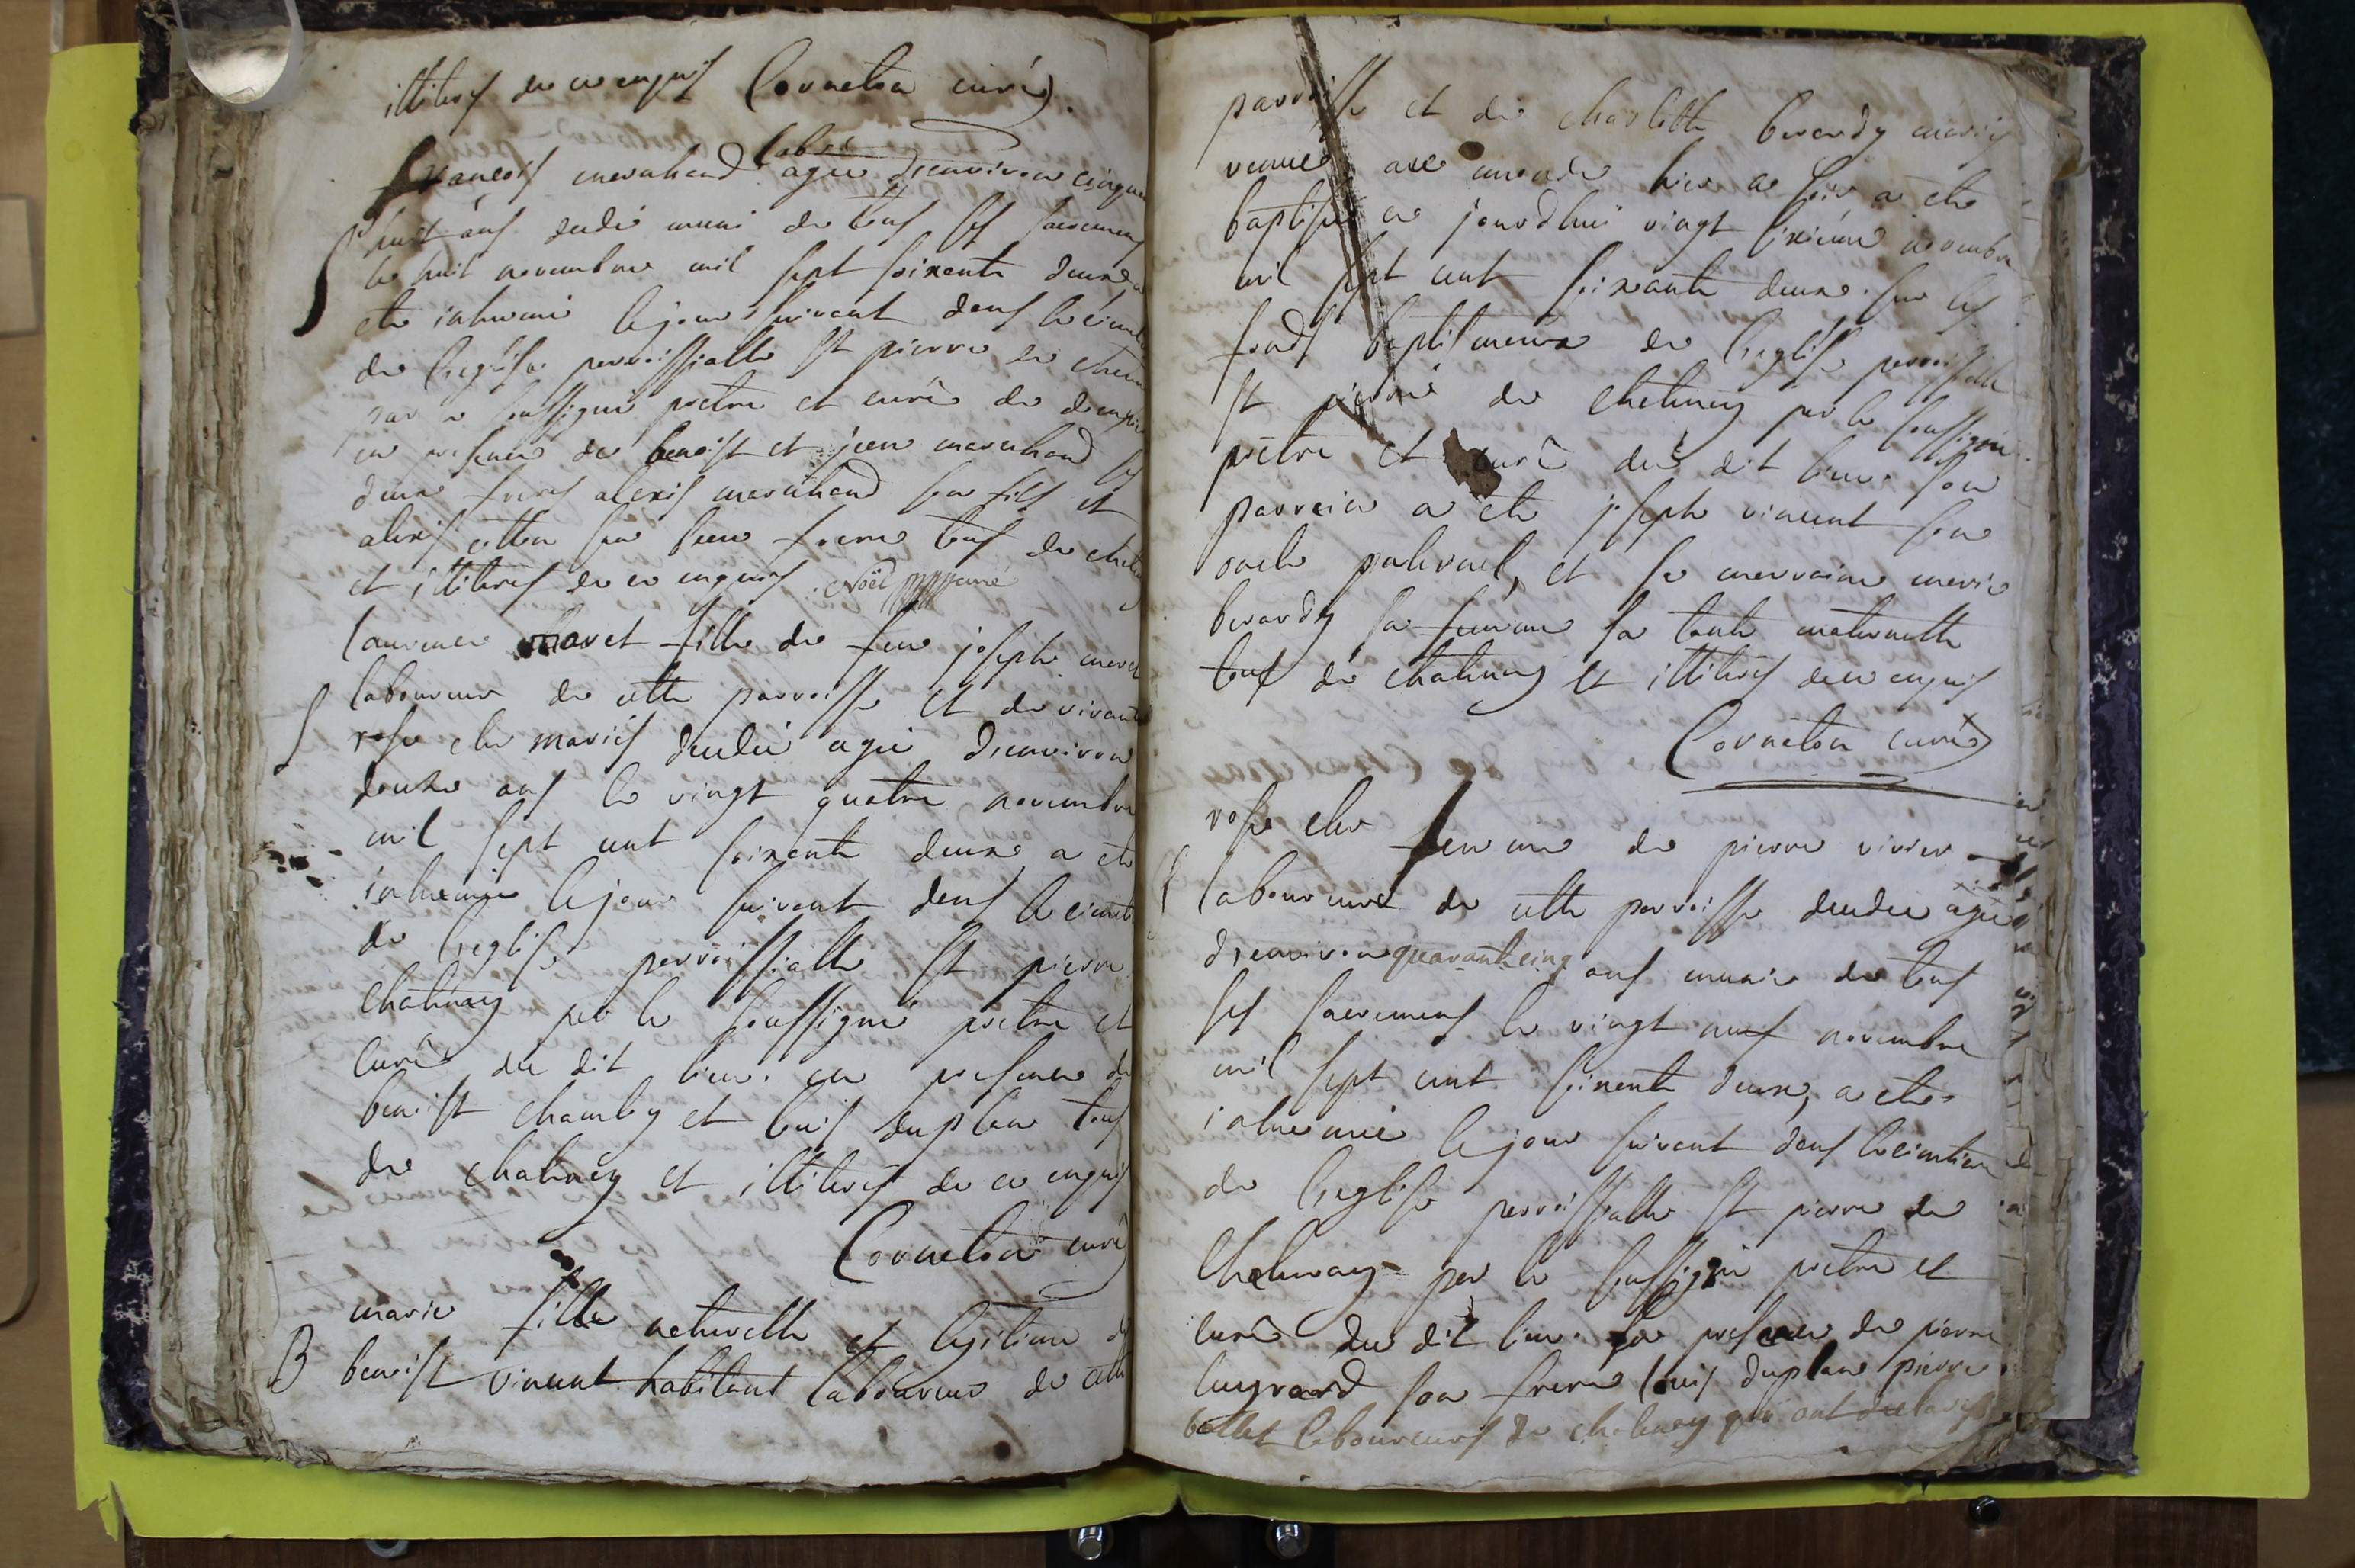 illiterés de ce enquis Corneton curé.
françois marchand labr agé d'environ cinqua
huit ans decedé muni de tous ses sacremens
le huit novembre mil sept soixante deux a
ete inhumé le jour suivant dans le cimet
de l'eglise parroissialle St pierre de chatn
par le soussigné prêtre et curé de
en presence de benoist et jean marchand ses
deux freres alexis marchand son fils et
alexis son beau frere tous de chatn
et illiterés de ce enquis
laurence maret fille de feu joseph maret
laboureur de cette parroisse et de vivante
rose cler mariés decedée agée d'environ
douze ans le vingt quatre novembre
mil sept cent soixante deux a ete
inhumée le jour suivant dans le cimeti
de l'eglise parroissialle St pierre
chatenay par le soussigné prêtre et
curé du dit lieu en presence de
benoist chamby et louis duplan tous
de chatenay et illiterés de ce enquis
Corneton curé
marie fille naturelle et legitime de
B benoist vincent habitant laboureur de cette
parroisse et de charlotte berardy mariés
venue au monde hier a soir a ete
baptisée ce jourdhui vingt sixieme novembre
mil sept cent soixante deux sur les
fonds baptismaux de l'eglise parroissialle
St pierre de chatenay par le soussigné
prêtre et curé du dit lieu son
parrain a ete joseph vincent son
oncle paternel, et sa marraine marie
berardy sa femme sa tante maternelle
tous de chatenay et illiterés de ce enquis
Corneton curé
rose cler femme de pierre vivier
laboureur de cette parroisse decedée agée
d'environ quarantcinq ans munie de tous
ses sacremens le vingt neuf novembre
mil sept cent soixante deux, a ete
inhumée le jour suivant dans le cimetiere
de l'eglise parroissialle St pierre de
Chatenay par le soussigné prêtre et
curé du dit lieu en presence de pierre
son frere louis duplan pierre
bellet laboureurs de chatenay qui ont